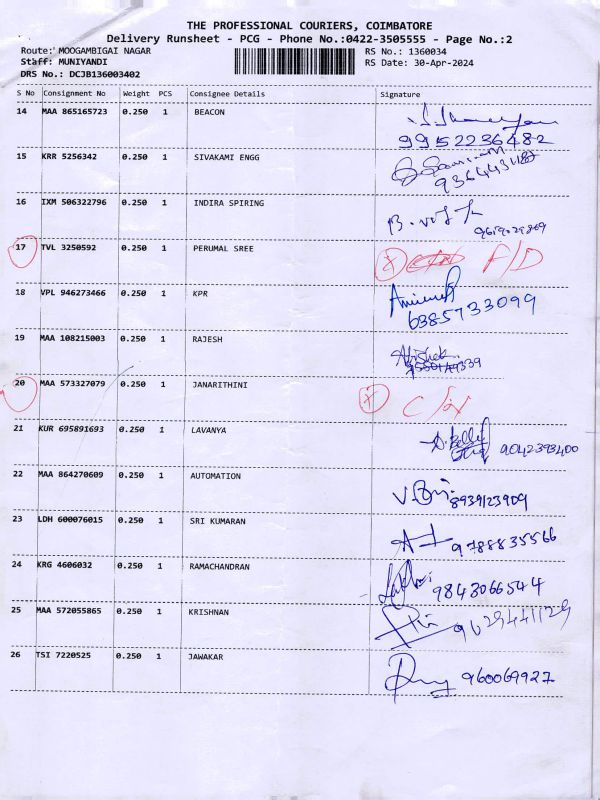 THE PROFESSIONAL COURIERS, COIMBATORE
Delivery Runsheet - PCG - Phone No.:0422-3505555 - Page No.:2
Route: MOOGAMBIGAI NAGAR RS No.: 1360034
Staff: MUNIYANDI RS Date: 30-Apr-2024
DRS No.: DCJB136003402
S No Consignment No Weight PCS Consignee Details Signature
14 MAA 865165723 0.250 1 BEACON
9952236482
15 KRR 5256342 0.250 1 SIVAKAMI ENGG
16 IXM 506322796 0.250 1 INDIRA SPIRING
17 TVL 3250592 0.250 1 PERUMAL SREE F/D
18 VPL 946273466 0.250 1 KPR
6385733099
19 MAA 108215003 0.250 1 RAJESH Abishek
20 MAA 573327079 0.250 1 JANARITHINI
21 KUR 695891693 0.250 1 LAVANYA 9042393400
22 MAA 864270609 0.250 1 AUTOMATION 8939123909
23 LDH 600076015 0.250 1 SRI KUMARAN 9788835566
24 KRG 4606032 0.250 1 RAMACHANDRAN 9843066544
25 MAA 572055865 0.250 1 KRISHNAN 9629441129
26 TSI 7220525 0.250 1 JAWAKAR 960069927